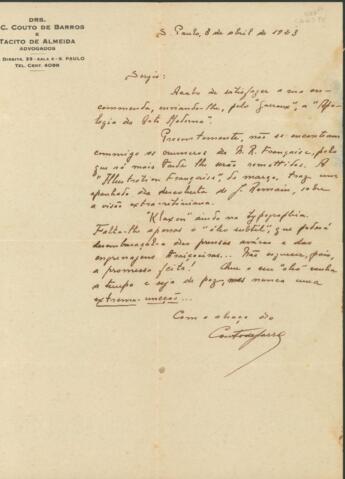 DRS.
C. COUTO DE BARROS
E
TACITO DE ALMEIDA
ADVOGADOS
DIREITA, 35 - SALA 4 - S. PAULO
TEL. CENT. 4098
S. Paulo, 8 de abril de 1923
Sergio:
Acabo de satisfazer a sua en-
commenda, enviando-lhe, pelo "Garraux", a "Apo-
logia da Arte Moderna".
Presentemente, não se encontram
commigo os numeros da N. R. Française, pelo
que só mais tarde lhe serão remettidos. A
"Illustration Française", de março, traz um
apanhado da descoberta de J. Romain, sobre
a visão extra-retiniana.
"Klaxon" ainda na typographia.
Falta-lhe apenas o "oleo subtil", que poderá
desembaraçal-a das prensas avaras e das
engrenagens traiçoeiras... Não esqueça, pois,
a promessa feita! Que o seu oleo venha
a tempo e seja de paz, mas nunca uma
extrema-uncção...
Com o abraço do
Couto de Barros